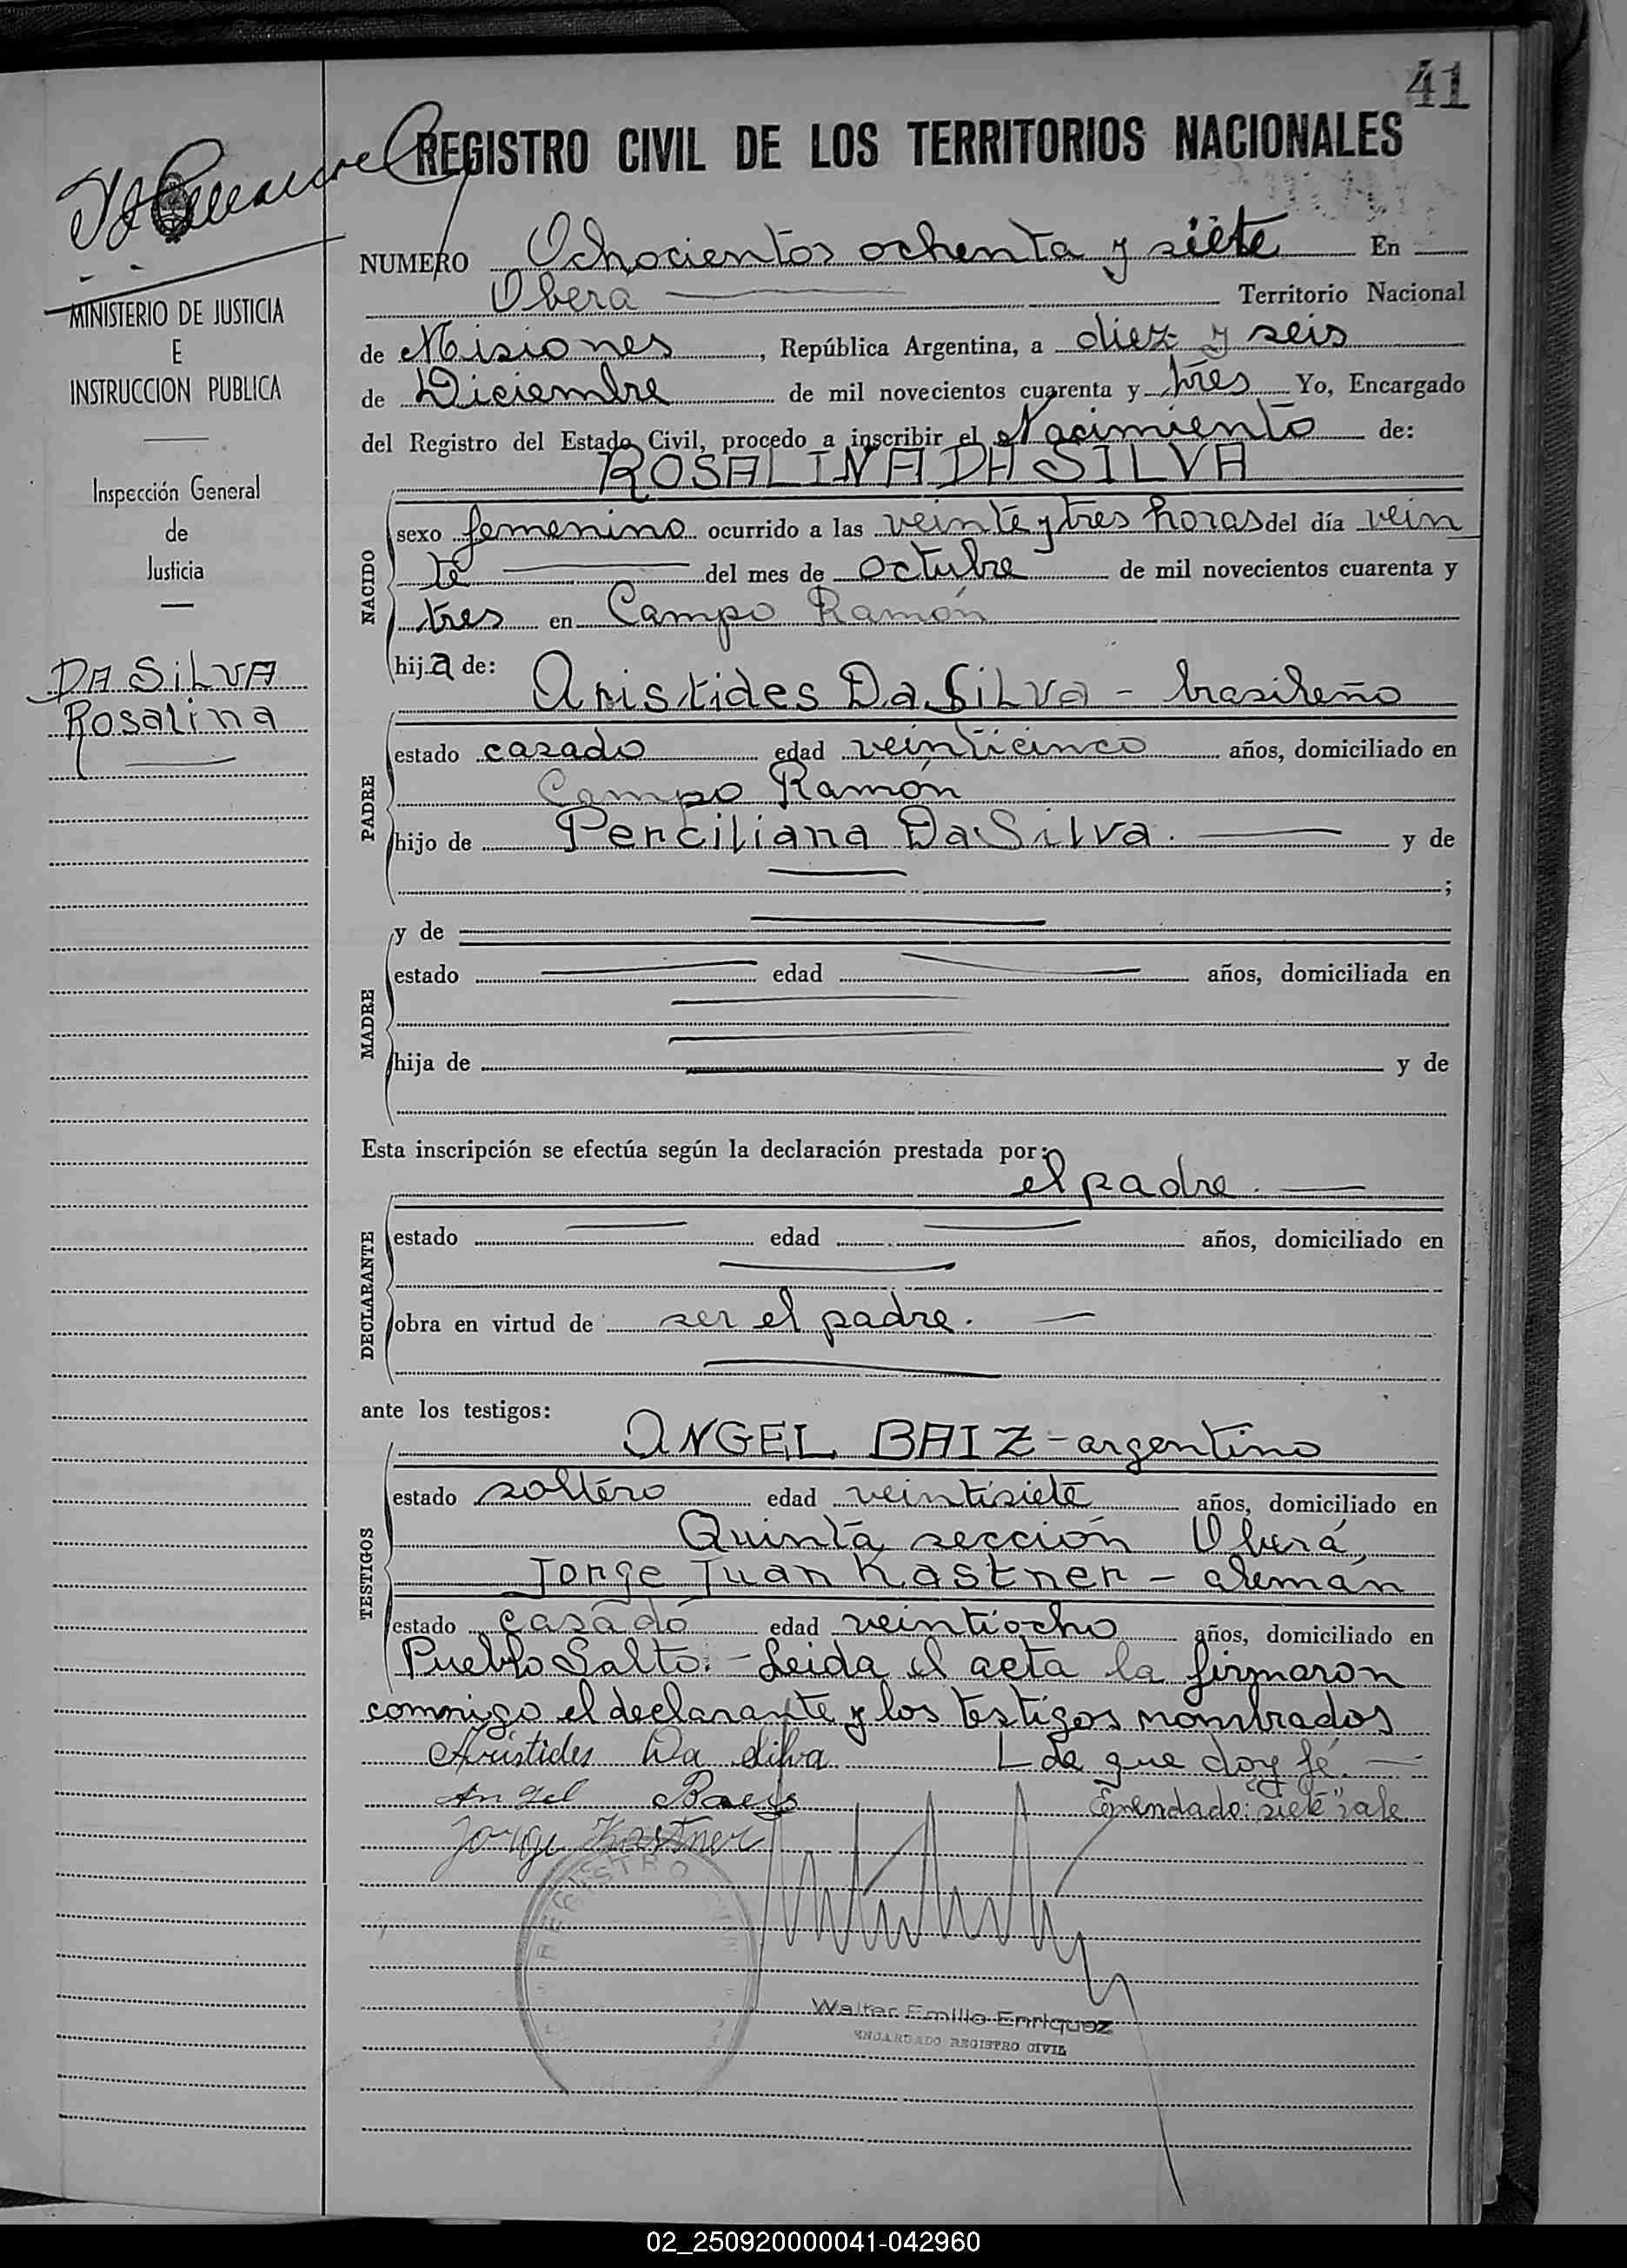 41
REGISTRO CIVIL DE LOS TERRITORIOS NACIONALES
NUMERO Ochocientos ochenta y siete En
Obera Territorio Nacional
de Misiones, República Argentina, a diez y seis
de Diciembre de mil novecientos cuarenta y tres Yo, Encargado
del Registro del Estado Civil, procedo a inscribir el Nacimiento de:
ROSALINA DA SILVA
MINISTERIO DE JUSTICIA
E
INSTRUCCION PUBLICA
Inspección General
de
Justicia
DA SiLVA
Rosalina
NACIDO
sexo femenino ocurrido a las veinte y tres horas del día vein
te del mes de octubre de mil novecientos cuarenta y
tres en Campo Ramón
hija de:
Aristides Da SiLVa - brasileño
PADRE
estado casado edad veinticinco años, domiciliado en
Campo Ramón
hijo de Perciliana Da Silva. y de
;
y de
MADRE
estado edad años, domiciliada en
hija de y de
Esta inscripción se efectúa según la declaración prestada por:
el padre.
DECLARANTE
estado edad años, domiciliado en
obra en virtud de ser el padre.
ante los testigos:
ANGEL BAIZ - argentino
TESTIGOS
estado soltéro edad veintisiete años, domiciliado en
Quinta sección Oberá
Jorge Juan Kastner - alemán
estado casado edad veintiocho años, domiciliado en
Pueblo Salto. - Leida el acta la firmaron
conmigo el declarante y los testigos nombrados
Arístides Da silva de que doy fé.
Angel Baeis Enmendado: "siete" vale
Jorge Kastner
REGISTRO
Walter Emilio Enriquez
ENCARGADO REGISTRO CIVIL
02_250920000041-042960